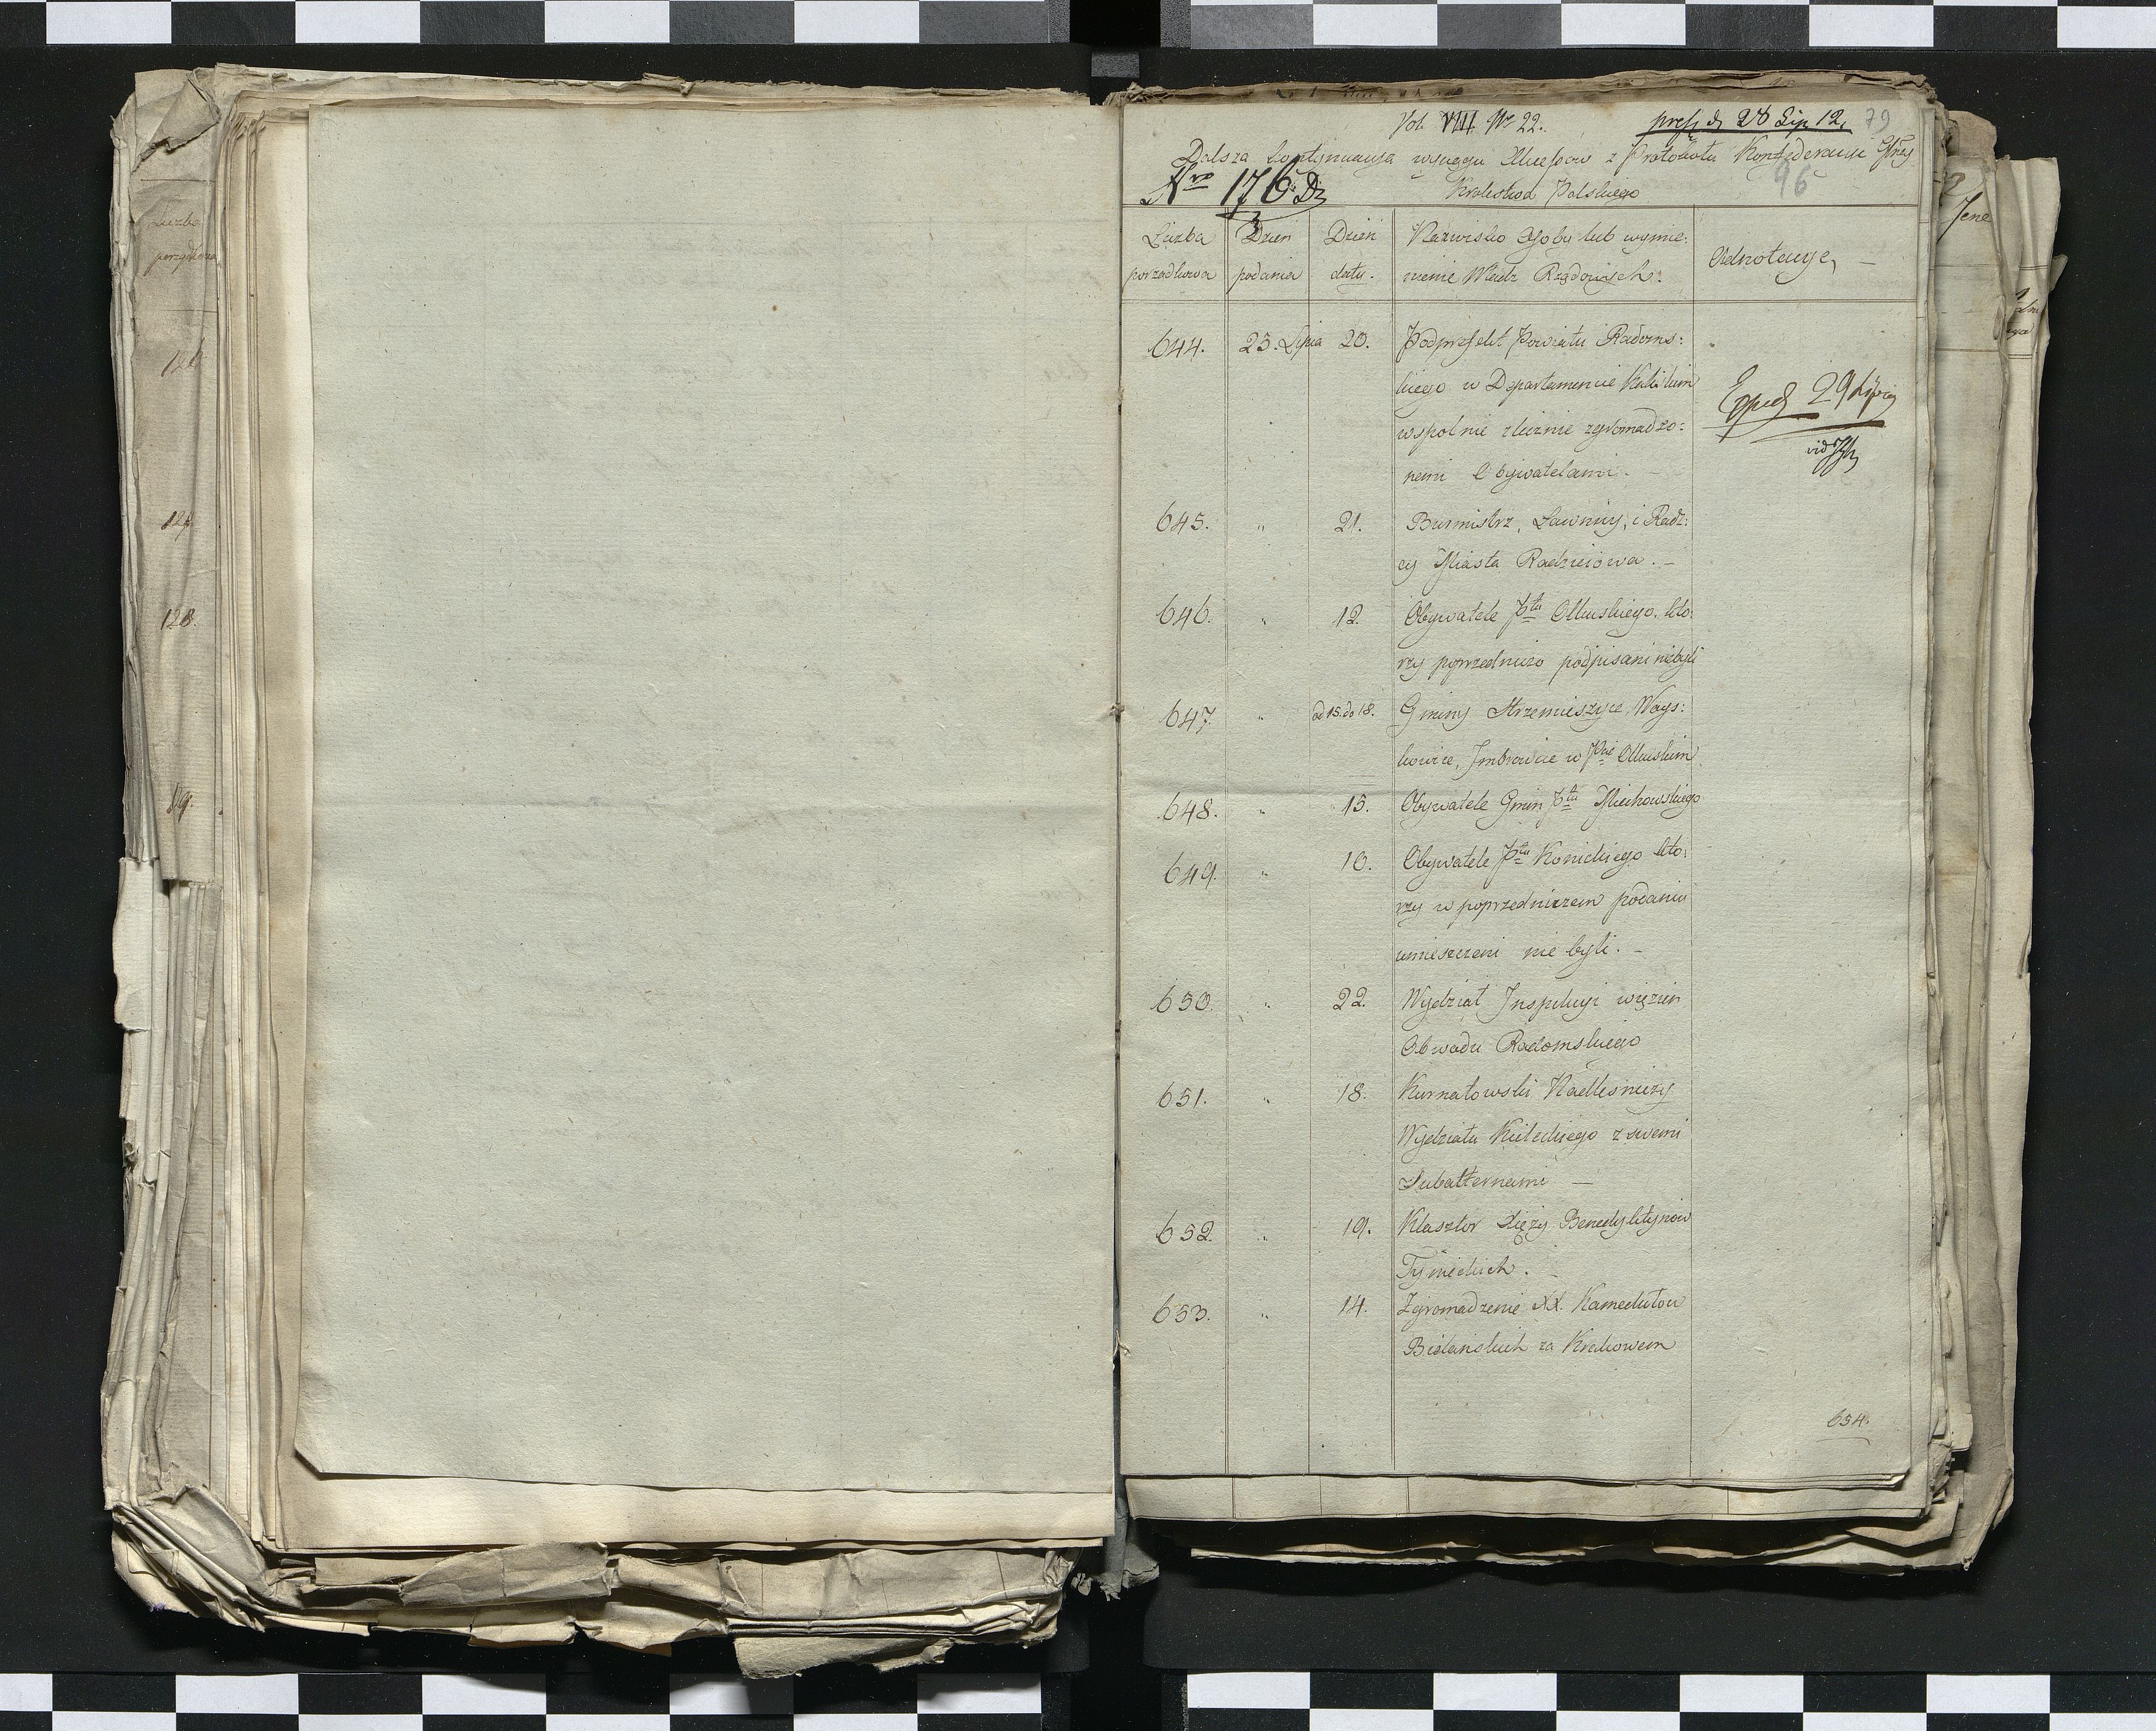 Liczba
porządkowa
126
127
128.
Vol. VIII Nr 22.
præs d. 28 Lip. 12.
79
Dalsza kontynuacya wyciągu Akcessow z Protokułu Konfederacyi Gney
Nro 176 Dz
Krolestwa Polskiego
96
Liczba porzadkowa
Dzien podania
Dzień daty.
Nazwisko Osoby lub wymie:
nienie Władz Rządowych.
Adnotacye, —
644. 23. Lipca 20. Podprefekt Powiatu Radoms:
kiego w Departamencie Kaliskim
wspolnie z licznie zgromadzo:
nemi Obywatelami. —
Exped 29 Lipca
vid
645. " 21. Burmistrz, Ławnicy, i Radz:
cy Miasta Radziejowa. —
646. " 12. Obywatele Ptu Olkuskiego. kto:
rzy poprzedniczo podpisani niebyli
647. " od 15. do 18. Gminy Strzemieszyce, Ways:
kowice, Imbrowice w Pcie Olkuskim
648. " 15. Obywatele Gmin Ptu Miechowskiego
649. " 10. Obywatele Ptu Konickiego kto:
rzy w poprzedniczem podaniu
umieszczeni nie byli. —
650. " 22. Wydział Inspekcyi więzien
Obwodu Radomskiego
651. " 18. Kurnatowski Nadlesniczy
Wydziału Kieleckiego z swemi
Subalternami —
652. " 19. Klasztor Xięży Benedyktynow
Tynieckich. —
653. " 14. Zgromadzenie XX. Kamedułow
Bielańskich za Krakowem
654.